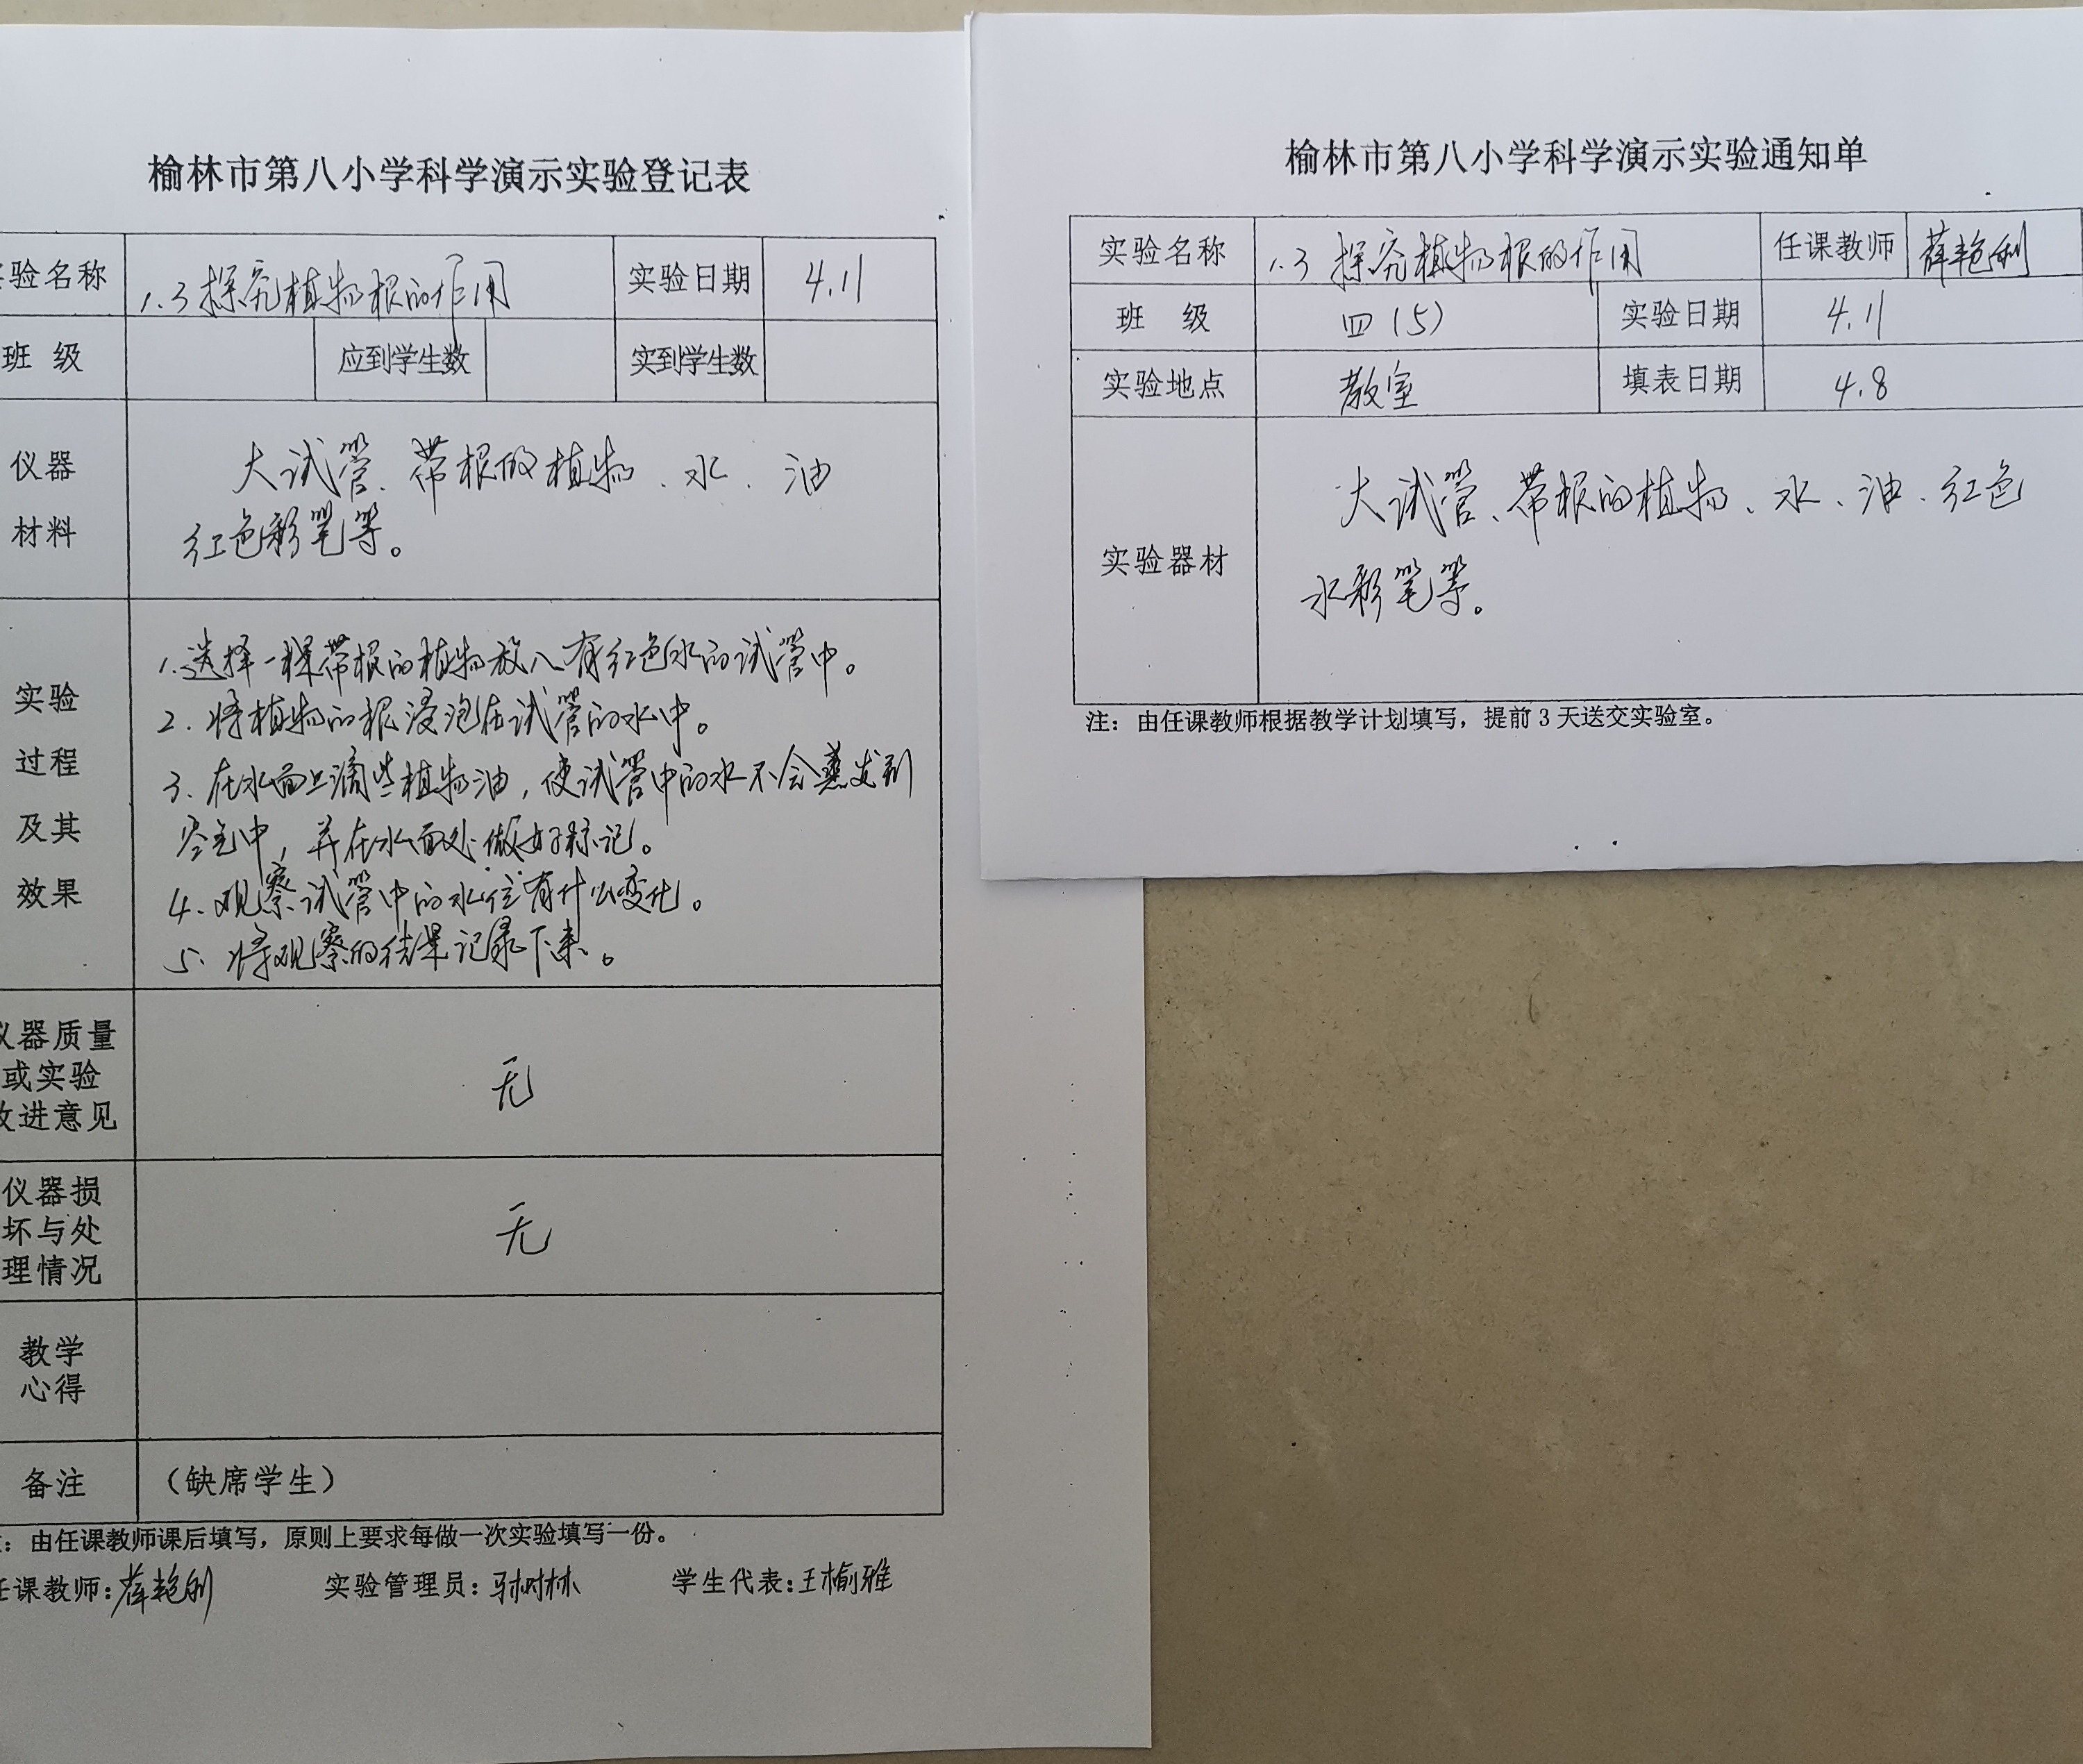 榆林市第八小学科学演示实验登记表
验名称 1.3 探究植物根的作用 实验日期 4.11
班 级 应到学生数 实到学生数
仪器
材料
大试管、带根的植物、水、油
红色彩笔等。
实验
过程
及其
效果
1.选择一棵带根的植物放入有红色水的试管中。
2.将植物的根浸泡在试管的水中。
3.在水面上滴些植物油,使试管中的水不会蒸发到
空气中,并在水面处做好标记。
4.观察试管中的水位有什么变化。
5.将观察的结果记录下来。
仪器质量
或实验
改进意见
无
仪器损
坏与处
理情况
无
教学
心得
备注 (缺席学生)
:由任课教师课后填写,原则上要求每做一次实验填写一份。
任课教师:薛艳利 实验管理员: 学生代表:王榆雅
榆林市第八小学科学演示实验通知单
实验名称 1.3 探究植物根的作用 任课教师 薛艳利
班 级 四(5) 实验日期 4.11
实验地点 教室 填表日期 4.8
实验器材
大试管、带根的植物、水、油、红色
水彩笔等。
注:由任课教师根据教学计划填写,提前3天送交实验室。